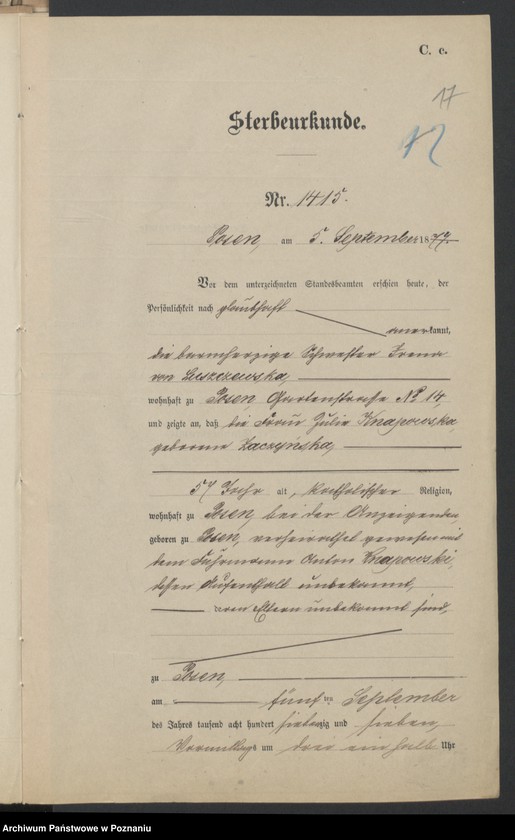 C. c.
17
12
Sterbeurkunde.
Nr. 1415.
Posen, am 5. September 1877.
Vor dem unterzeichneten Standesbeamten erschien heute, der
Persönlichkeit nach glaubhaft
anerkannt,
die barmherzige Schwester Irena
von Luszczewska,
wohnhaft zu Posen, Gartenstrasse No 14
und zeigte an, daß die Frau Julie Knapowska,
geborene Zaczyńska,
57 Jahr alt, katholischer Religion,
wohnhaft zu Posen, bei der Anzeigenden,
geboren zu Posen, verheirathet gewesen mit
dem Fuhrmann Anton Knapowski,
dessen Aufenthalt unbekannt,
deren Eltern unbekannt sind,
zu Posen,
am fünften September
des Jahres tausend acht hundert siebenzig und sieben,
Vormittags um drei ein halb Uhr
Archiwum Państwowe w Poznaniu